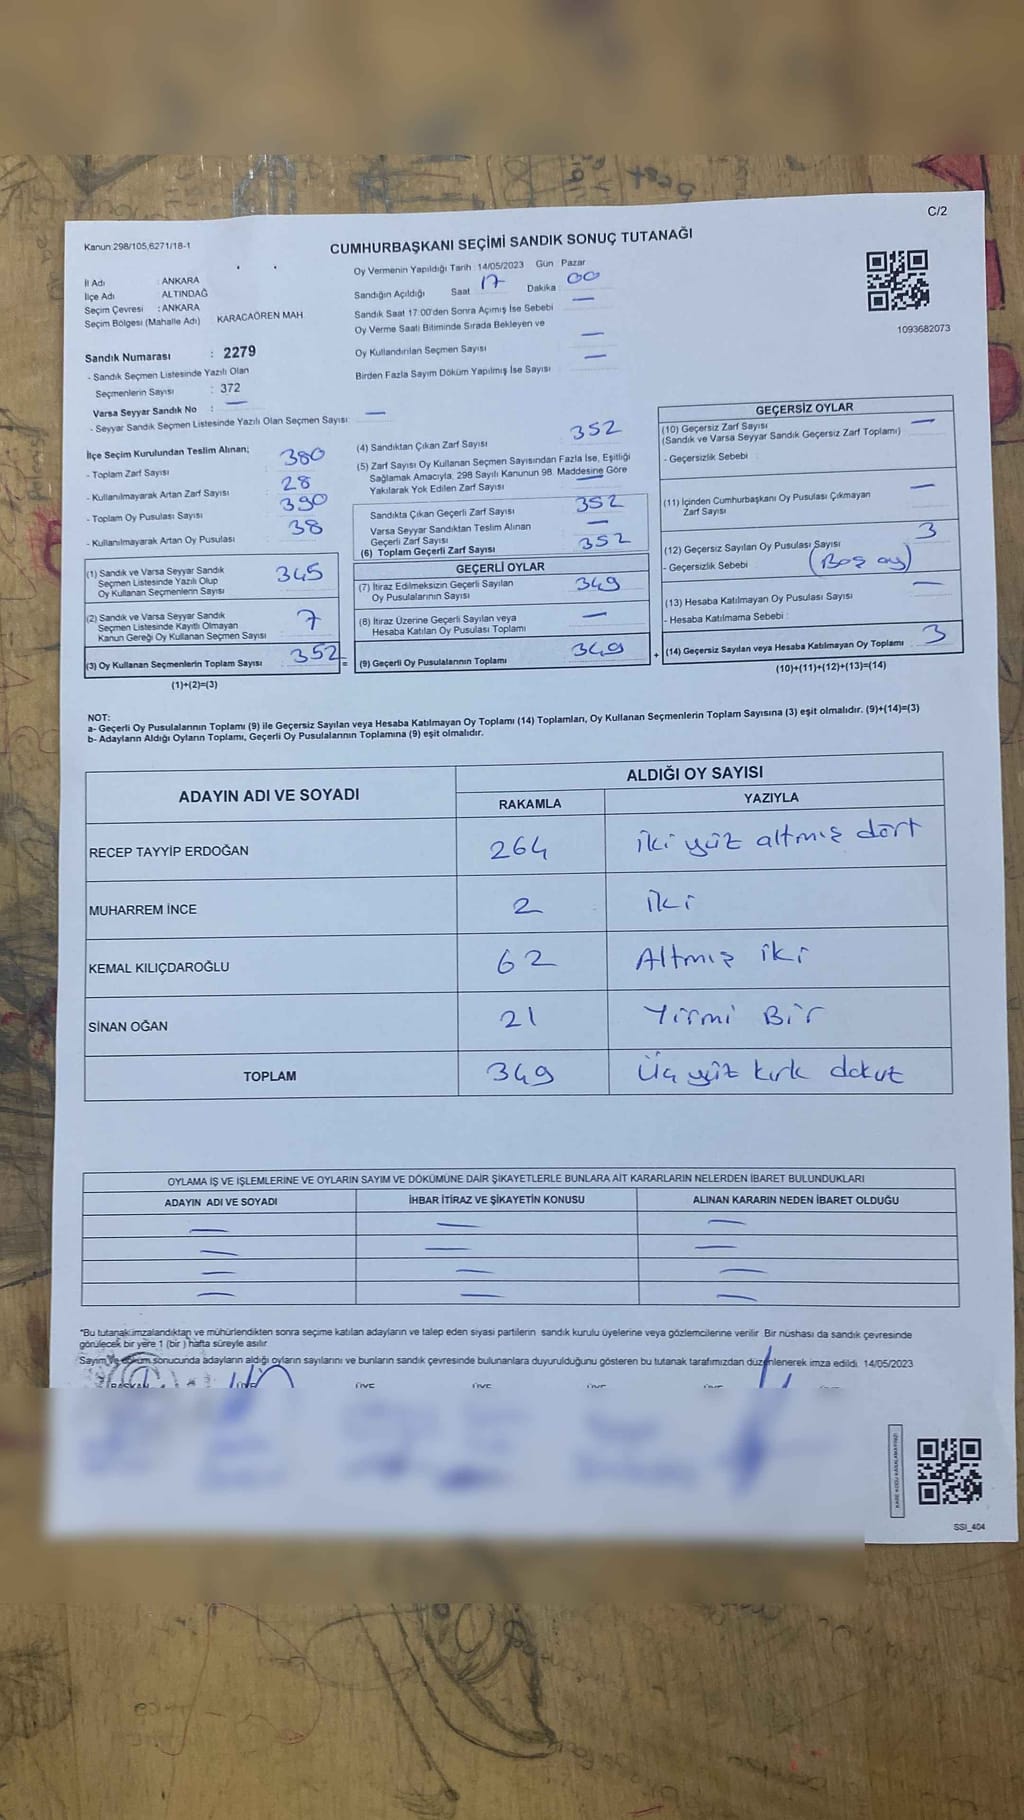 C/2
Kanun:298/105,6271/18-1
CUMHURBAŞKANI SEÇİMİ SANDIK SONUÇ TUTANAĞI
İl Adı : ANKARA
İlçe Adı ALTINDAĞ
Seçim Çevresi : ANKARA
Seçim Bölgesi (Mahalle Adı) KARACAÖREN MAH.
Oy Vermenin Yapıldığı Tarih : 14/05/2023 Gün : Pazar
Sandığın Açıldığı Saat 17 Dakika : 00
Sandık Saat 17:00'den Sonra Açımış İse Sebebi —
Oy Verme Saati Bitiminde Sırada Bekleyen ve
Oy Kullandırılan Seçmen Sayısı —
Birden Fazla Sayım Döküm Yapılmış İse Sayısı —
1093682073
Sandık Numarası : 2279
- Sandık Seçmen Listesinde Yazılı Olan
Seçmenlerin Sayısı : 372
Varsa Seyyar Sandık No : —
- Seyyar Sandık Seçmen Listesinde Yazılı Olan Seçmen Sayısı: —
İlçe Seçim Kurulundan Teslim Alınan;
- Toplam Zarf Sayısı 380
- Kullanılmayarak Artan Zarf Sayısı 28
- Toplam Oy Pusulası Sayısı 390
- Kullanılmayarak Artan Oy Pusulası 38
(1) Sandık ve Varsa Seyyar Sandık
Seçmen Listesinde Yazılı Olup
Oy Kullanan Seçmenlerin Sayısı 345
(2) Sandık ve Varsa Seyyar Sandık
Seçmen Listesinde Kayıtlı Olmayan
Kanun Gereği Oy Kullanan Seçmen Sayısı 7
(3) Oy Kullanan Seçmenlerin Toplam Sayısı 352 =
(1)+(2)=(3)
(4) Sandıktan Çıkan Zarf Sayısı 352
(5) Zarf Sayısı Oy Kullanan Seçmen Sayısından Fazla İse, Eşitliği
Sağlamak Amacıyla, 298 Sayılı Kanunun 98. Maddesine Göre
Yakılarak Yok Edilen Zarf Sayısı —
Sandıkta Çıkan Geçerli Zarf Sayısı 352
Varsa Seyyar Sandıktan Teslim Alınan
Geçerli Zarf Sayısı —
(6) Toplam Geçerli Zarf Sayısı 352
GEÇERLİ OYLAR
(7) İtiraz Edilmeksizin Geçerli Sayılan
Oy Pusulalarının Sayısı 349
(8) İtiraz Üzerine Geçerli Sayılan veya
Hesaba Katılan Oy Pusulası Toplamı —
(9) Geçerli Oy Pusulalarının Toplamı 349 +
GEÇERSİZ OYLAR
(10) Geçersiz Zarf Sayısı —
(Sandık ve Varsa Seyyar Sandık Geçersiz Zarf Toplamı)
- Geçersizlik Sebebi :
(11) İçinden Cumhurbaşkanı Oy Pusulası Çıkmayan
Zarf Sayısı —
(12) Geçersiz Sayılan Oy Pusulası Sayısı 3
- Geçersizlik Sebebi (Boş oy)
(13) Hesaba Katılmayan Oy Pusulası Sayısı —
- Hesaba Katılmama Sebebi :
(14) Geçersiz Sayılan veya Hesaba Katılmayan Oy Toplamı 3
(10)+(11)+(12)+(13)=(14)
NOT:
a- Geçerli Oy Pusulalarının Toplamı (9) ile Geçersiz Sayılan veya Hesaba Katılmayan Oy Toplamı (14) Toplamları, Oy Kullanan Seçmenlerin Toplam Sayısına (3) eşit olmalıdır. (9)+(14)=(3)
b- Adayların Aldığı Oyların Toplamı, Geçerli Oy Pusulalarının Toplamına (9) eşit olmalıdır.
ADAYIN ADI VE SOYADI ALDIĞI OY SAYISI
RAKAMLA YAZIYLA
RECEP TAYYİP ERDOĞAN 264 iki yüz altmış dört
MUHARREM İNCE 2 iki
KEMAL KILIÇDAROĞLU 62 Altmış iki
SİNAN OĞAN 21 Yirmi Bir
TOPLAM 349 Üç yüz kırk dokuz
OYLAMA İŞ VE İŞLEMLERİNE VE OYLARIN SAYIM VE DÖKÜMÜNE DAİR ŞİKAYETLERLE BUNLARA AİT KARARLARIN NELERDEN İBARET BULUNDUKLARI
ADAYIN ADI VE SOYADI İHBAR İTİRAZ VE ŞİKAYETİN KONUSU ALINAN KARARIN NEDEN İBARET OLDUĞU
— — —
— — —
— — —
— — —
*Bu tutanak imzalandıktan ve mühürlendikten sonra seçime katılan adayların ve talep eden siyasi partilerin sandık kurulu üyelerine veya gözlemcilerine verilir. Bir nüshası da sandık çevresinde
görülecek bir yere 1 (bir) hafta süreyle asılır.
Sayım ve döküm sonucunda adayların aldığı oyların sayılarını ve bunların sandık çevresinde bulunanlara duyurulduğunu gösteren bu tutanak tarafımızdan düzenlenerek imza edildi. 14/05/2023
BAŞKAN ÜYE ÜYE ÜYE ÜYE ÜYE
SSI_404